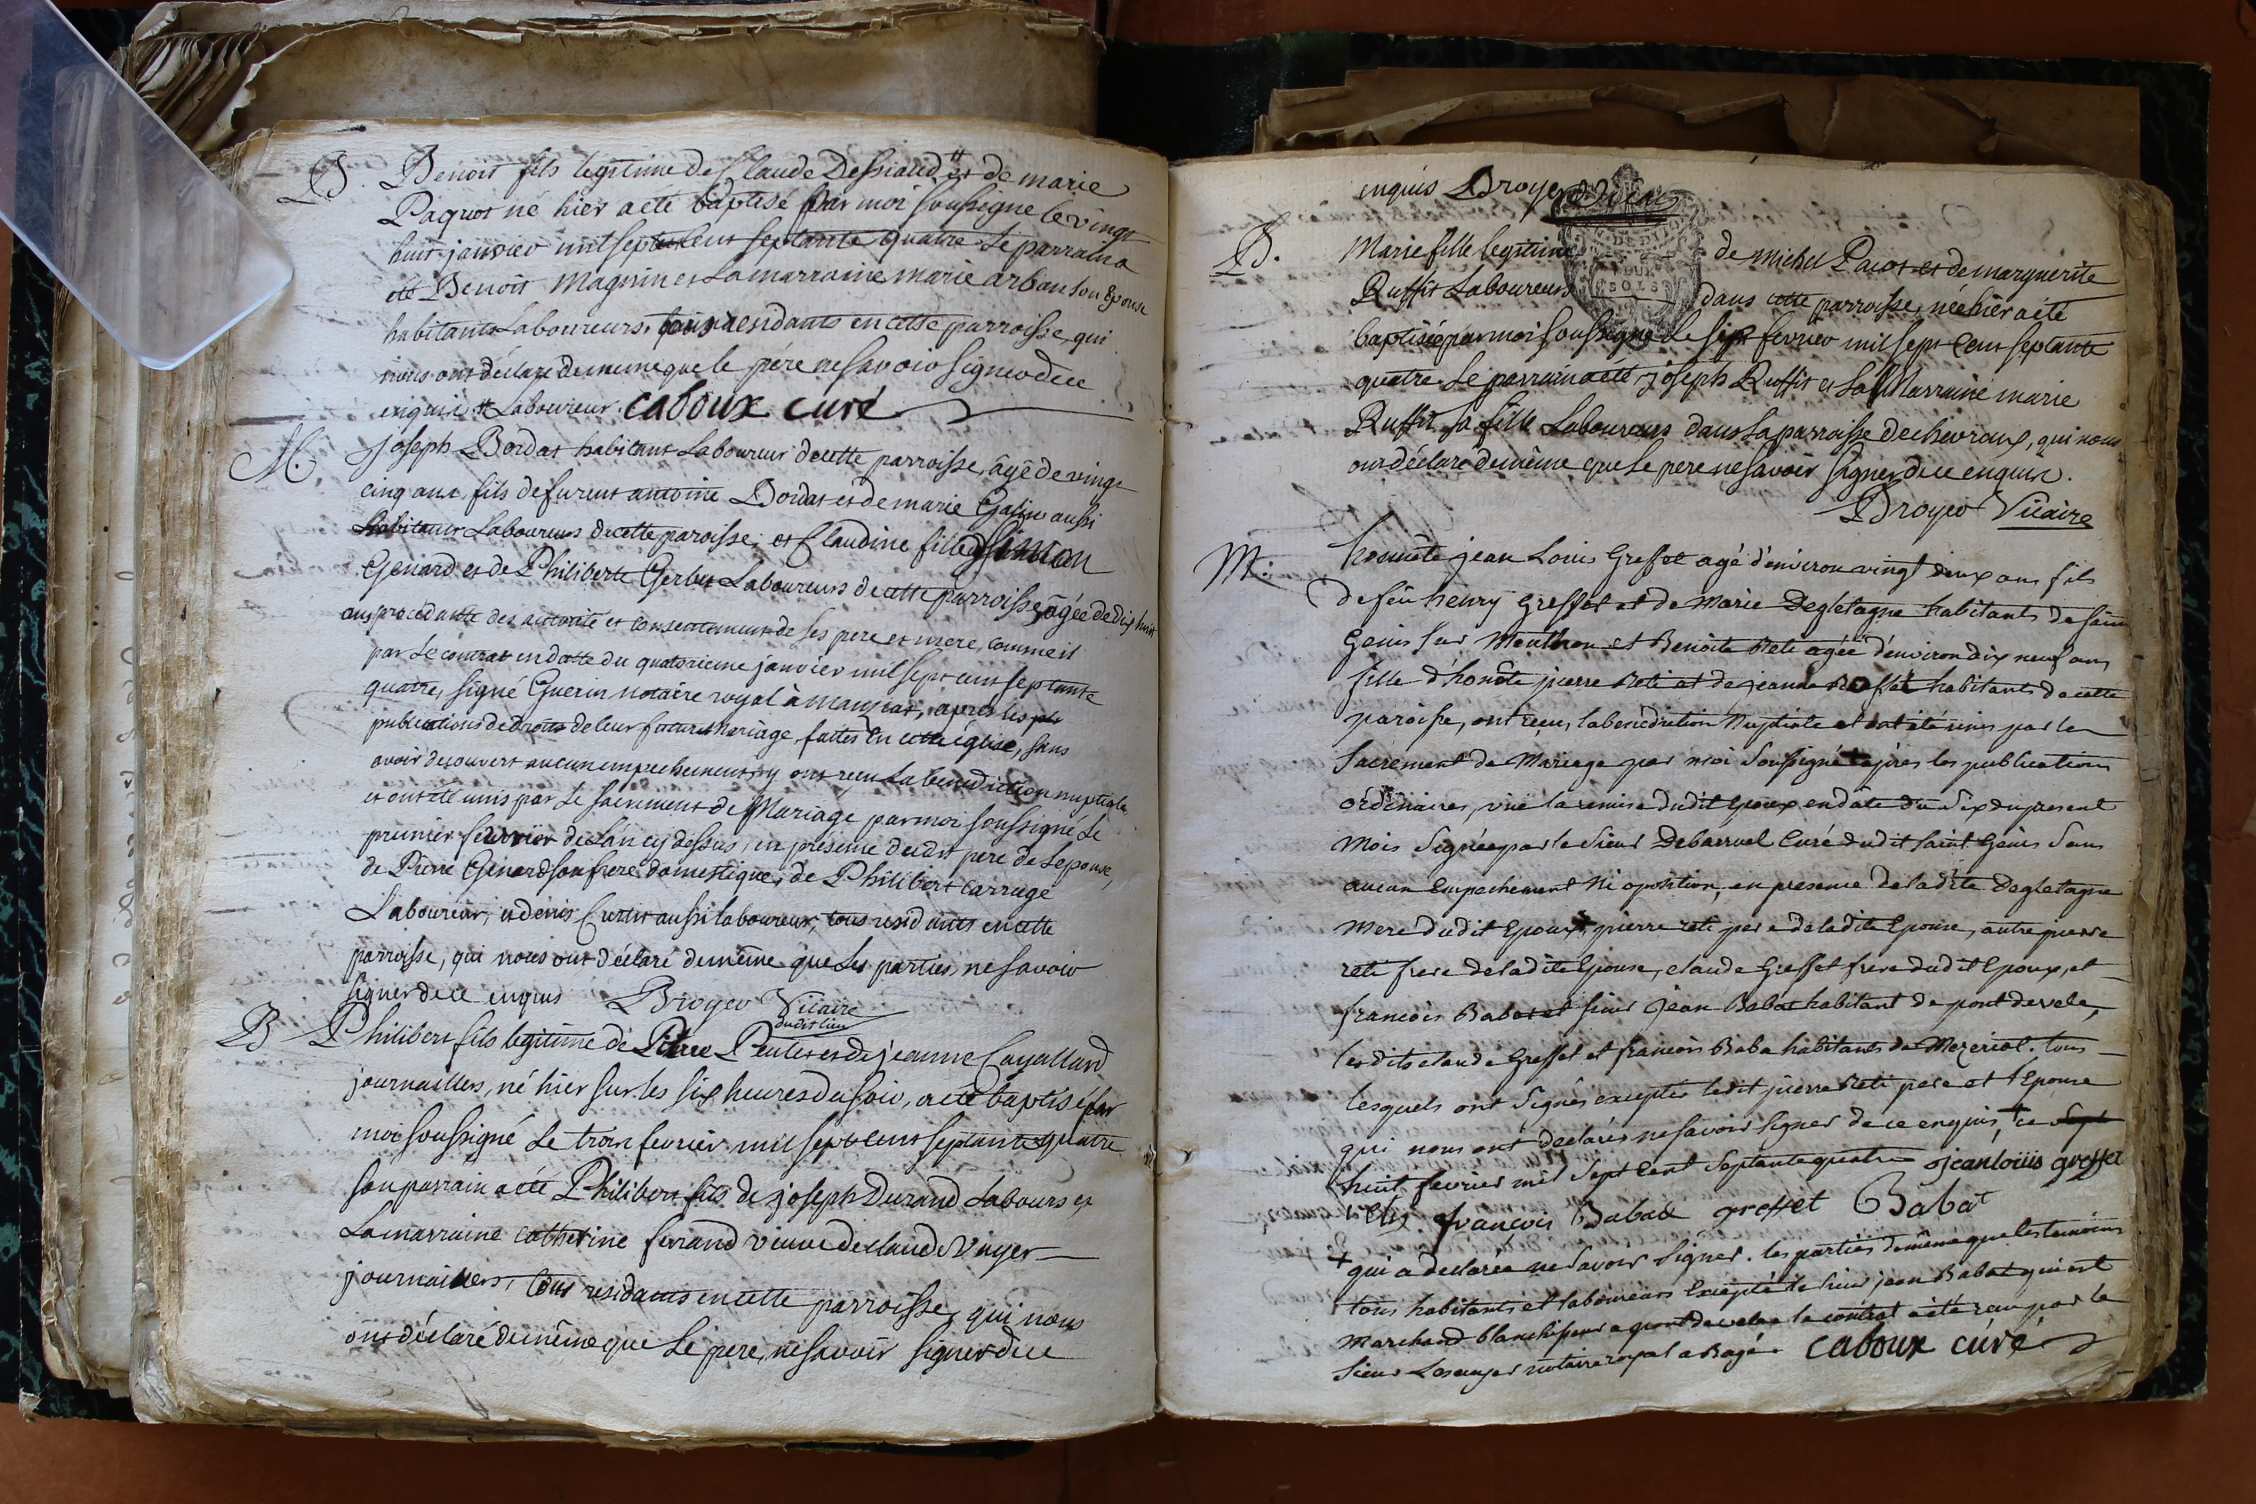 B. Benoit fils legitime de Claude Dessialed # et de marie
Paquot né hier a été baptisé par moi soussigné le vingt
huit janvier mil sept cent septante quatre Le parrain a
été Benoit Magnin et La marraine marie arban son Epouse
habitants Laboureurs, tous residants en cette parroisse, qui
nous ont déclaré de meme que le pére ne savoir signer de ce
enquis # Laboureur. caboux curé
M. Joseph Bordat habitant Laboureur de cette parroisse, âgé de vingt
cinq ans, fils de furent antoine Bordat et de marie Galin aussi
habitants Laboureurs de cette paroisse; et Claudine fille de
Genard et de Philiberte Gerbet Laboureurs de cette parroisse, âgée de dix huit
ans procédante des autorité et consentement de ses pere et mere, comme il
par le contrat en datte du quatorzieme janvier mil sept cent septante
quatre, signé Guerin notaire royal à manziat, après les
publications de droits de leur futur Mariage, faittes en cette église, sans
avoir découvert aucun empechement, y ont reçu La benediction nuptiale
et ont été unis par Le sacrement de Mariage par moi soussigné Le
premier fevrier de L'an cy dessus, en présence dudit pere de Lepouse,
de Pierre Genard son frere domestique, de Philibert Carruge
Laboureur, et denis Curtit aussi laboureur, tous residants en cette
parroisse, qui nous ont déclaré de même que Les parties, ne savoir
signer de ce enquis Broyer Vicaire
dudit lieu
B Philibert fils legitime de Pierre Peulet et de jeanne Cayalland
journailliers, né hier sur les six heures du soir, a été baptisé par
moi soussigné Le trois fevrier mil sept cent septante quatre
son parrain a été Philibert fils de joseph Durand Labours et
La marraine catherine ferrand veuve de claude Vuyer
journaillers, tous residants en cette parroisse, qui nous
ont déclaré de même que Le pere, ne savoir signer de ce
enquis Broyer Vicair
B. Marie fille legitime de michel Pacot et de marguerite
Ruffit Laboureurs dans cette parroisse, née hier a été
baptisée par moi soussigné Le sept fevrier mil sept cent septante
quatre Le parrain a été joseph Ruffit et La Marraine marie
Ruffit sa fille Laboureurs dans La parroisse de chevroux, qui nous
ont déclaré de même que Le pere ne savoir signer de ce enquis.
Broyer Vicaire
M: honnête jean Louis Greffet agé d'environ vingt deux ans fils
de feu henry Greffet et de Marie Degletagne habitants de saint
Genis sur Menthon et Benoite Reti agée d'environ dix neuf ans
fille d'honnête pierre Reti et de jeanne habitants de cette
paroisse, ont reçu la benediction Nuptiale et ont été unis par le
Sacrement de Mariage par moi Soussigné après les publications
ordinaires, vüe la remise dudit Epoux en date du Six du present
Mois Signée par le Sieur Debarruel Curé dudit Saint Genis Sans
aucun Empechement Ni oposition, en presence de ladite Degletagne
Mere dudit Epoux, + pierre reti pere de ladite Epouse, autre pierre
reti frere de ladite Epouse, claude Greffet frere dudit Epoux, et
françois Babat et sieur jean Babat habitant de pont de vele,
lesdits claude Greffet et françois Baba habitants de Mezeriat. tous
lesquels ont Signés exceptés ledit pierre Reti pere et l'Epouse
qui nous ont declarés ne savoir signer de ce enquis, ce sept
huit fevrier mil Sept Cent Septante quatre jean louis greffet
rety françois Babat greffet Babat
+ qui a declarée ne savoir signer. les parties de même que les temoins
tous habitants et laboureurs Excepté le sieur jean Babat qui est
Marchand blanchisseur a pont de vele le contrat a été reçu par le
sieur notaire royal a Bagé. caboux curé
DEUX
SOLS